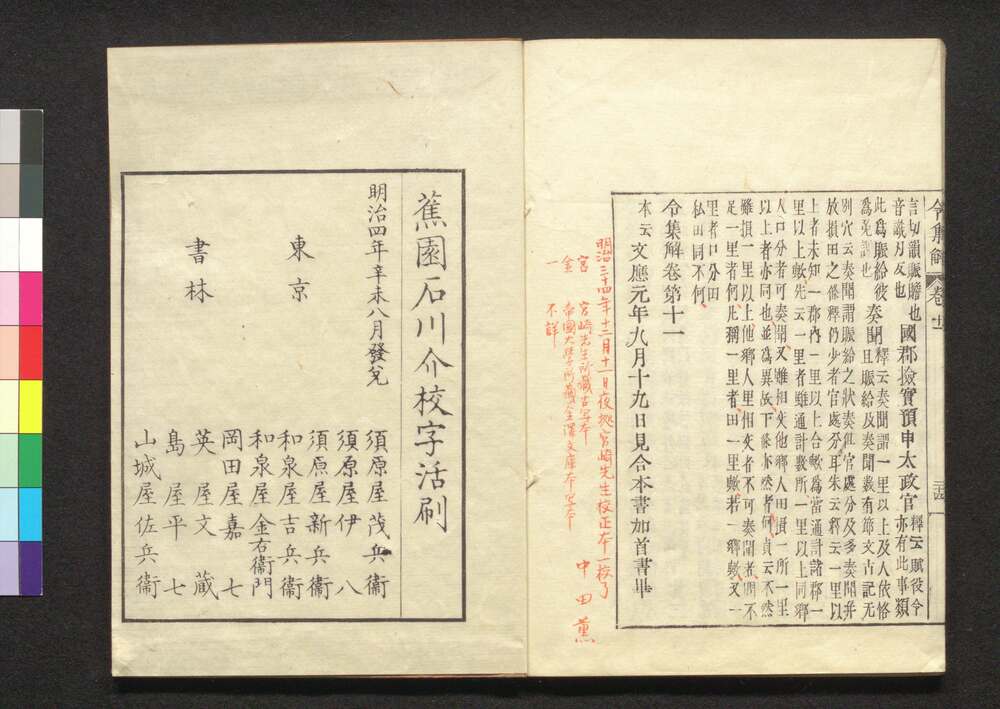 令集解 卷十一
言切韻賑贍也國郡撿實預申太政官釋云賦役令
音識刃反也亦有此事類
此爲賑給彼奏聞釋云奏聞謂一里以上及人依恪
爲免調也且賑給及奏聞數有節文古記无
別穴云奏聞謂賑給之狀奏組官處分及多奏聞幷
放損田之條釋仍少者官處分耳朱云釋云一里以
上者未知一郡內一里以上合數爲當通計諸郡一
里以上數先云一里者雖通計數所一里以上同鄉
人口分者可奏聞又雖相交他鄉人田損一所一里
以上者亦同也並爲異故下條亦然者何貞云不然
雖損一里以上他鄉人里相交者不可奏聞者問不
足一里者何凡稱一里者田一里歟若一鄉歟又一
里者口分田
私田同不何
令集解卷第十一
本云文應元年九月十九日見合本書加首書畢
明治三十四年十二月十一日夜以宮崎先生校正本一校了
宮 宮崎先生所藏古写本
金 帝國大學所藏金澤文庫本写本
一 不詳
中田薫
蕉園石川介校字活刷
明治四年辛未八月發兌
東京
書林
須原屋茂兵衞
須原屋伊八
須原屋新兵衞
和泉屋吉兵衞
和泉屋金右衞門
岡田屋嘉七
英屋文藏
島屋平七
山城屋佐兵衞